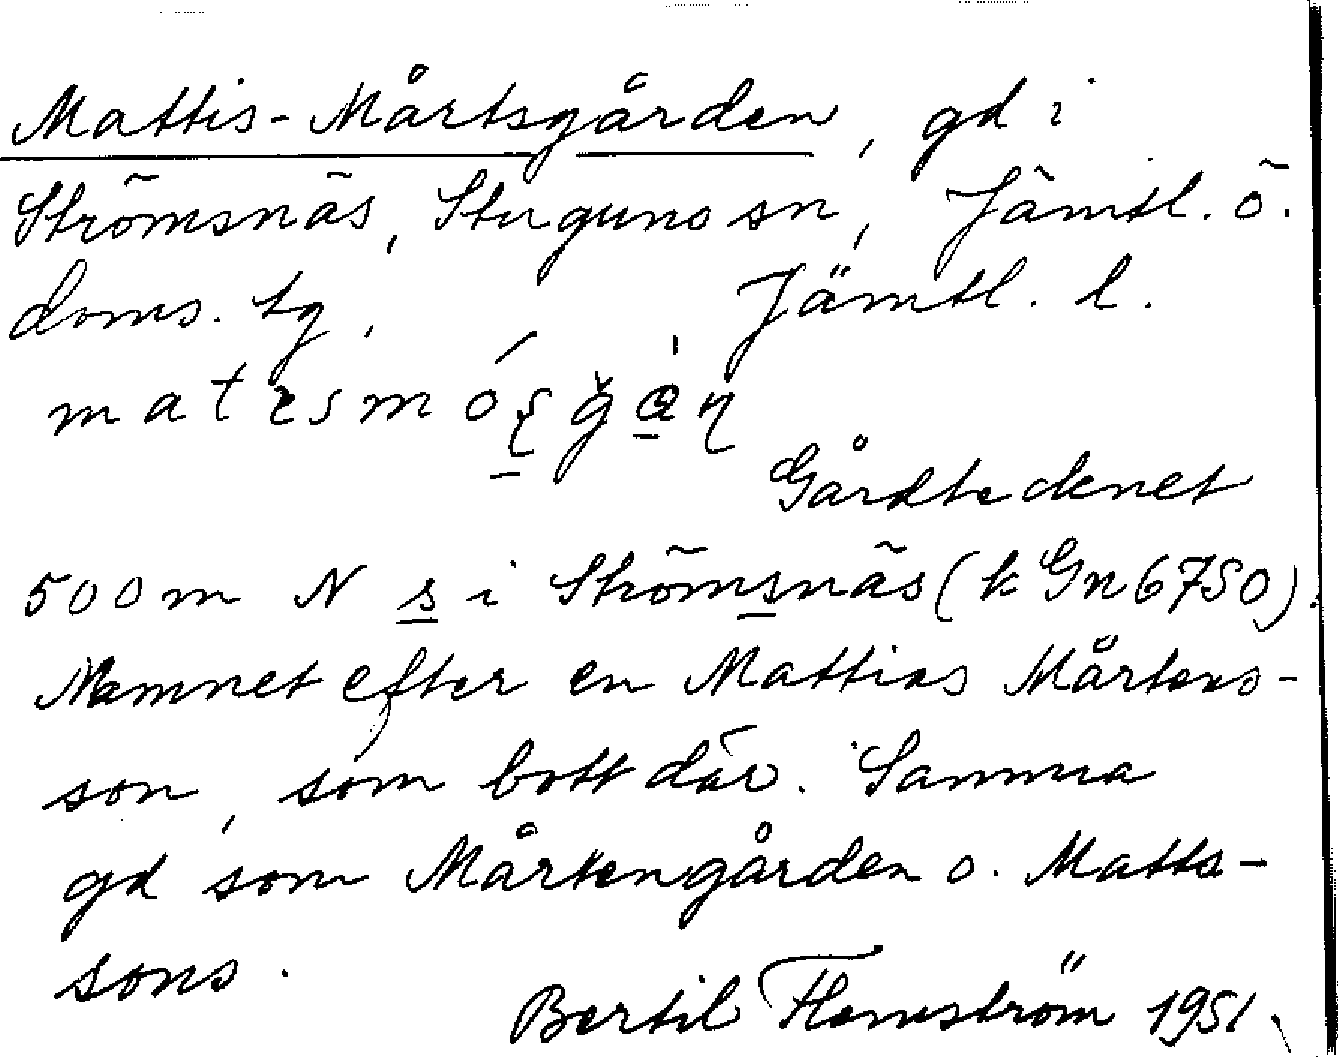 Mattis-Mårtsgården, gd i
Strömsnäs, Stuguns sn, Jämtl. ö.
doms. tg, Jämtl. l.
Gårdtecknet
500 m N s i Strömsnäs (k Gn 6750).
Namnet efter en Mattias Mårtens-
son, som bott där. Samma
gd som Mårtengården o. Matts-
sons.
Bertil Flemström 1951.